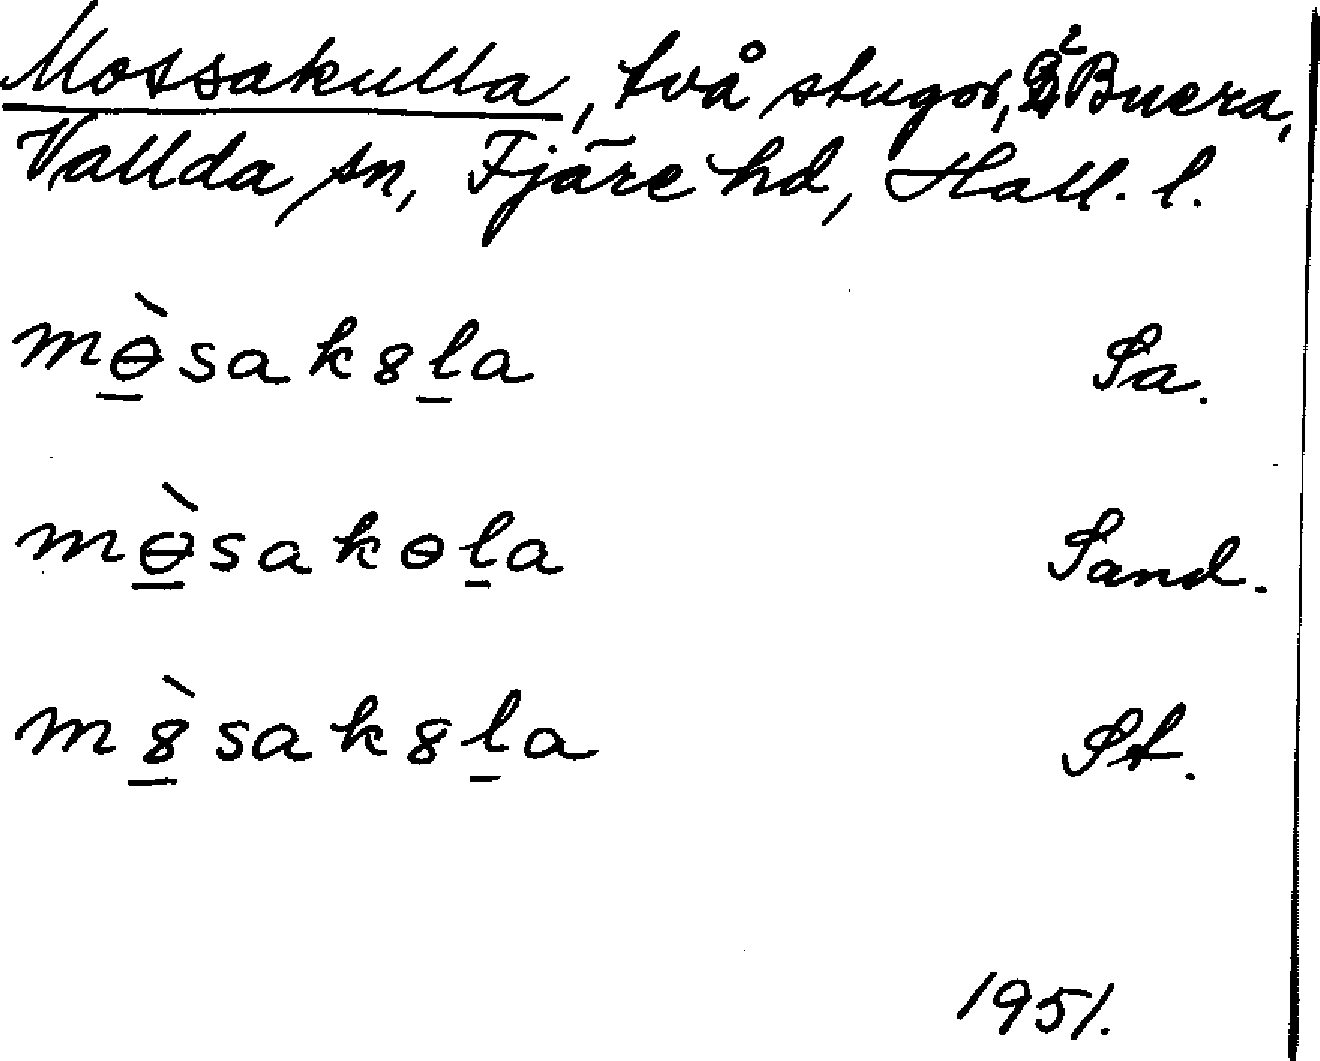 Mossakulla, två stugor, 2 Buera,
Vallda sn, Fjäre hd, Hall. l.
mɵ̀sak8la Sa.
mɵ̀sakɵla Sand.
m8̀sak8la St.
1951.